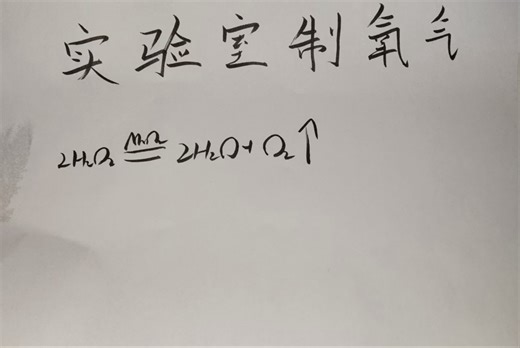 实验室制氧气
2H₂O₂ ═(MnO₂)═ 2H₂O + O₂↑